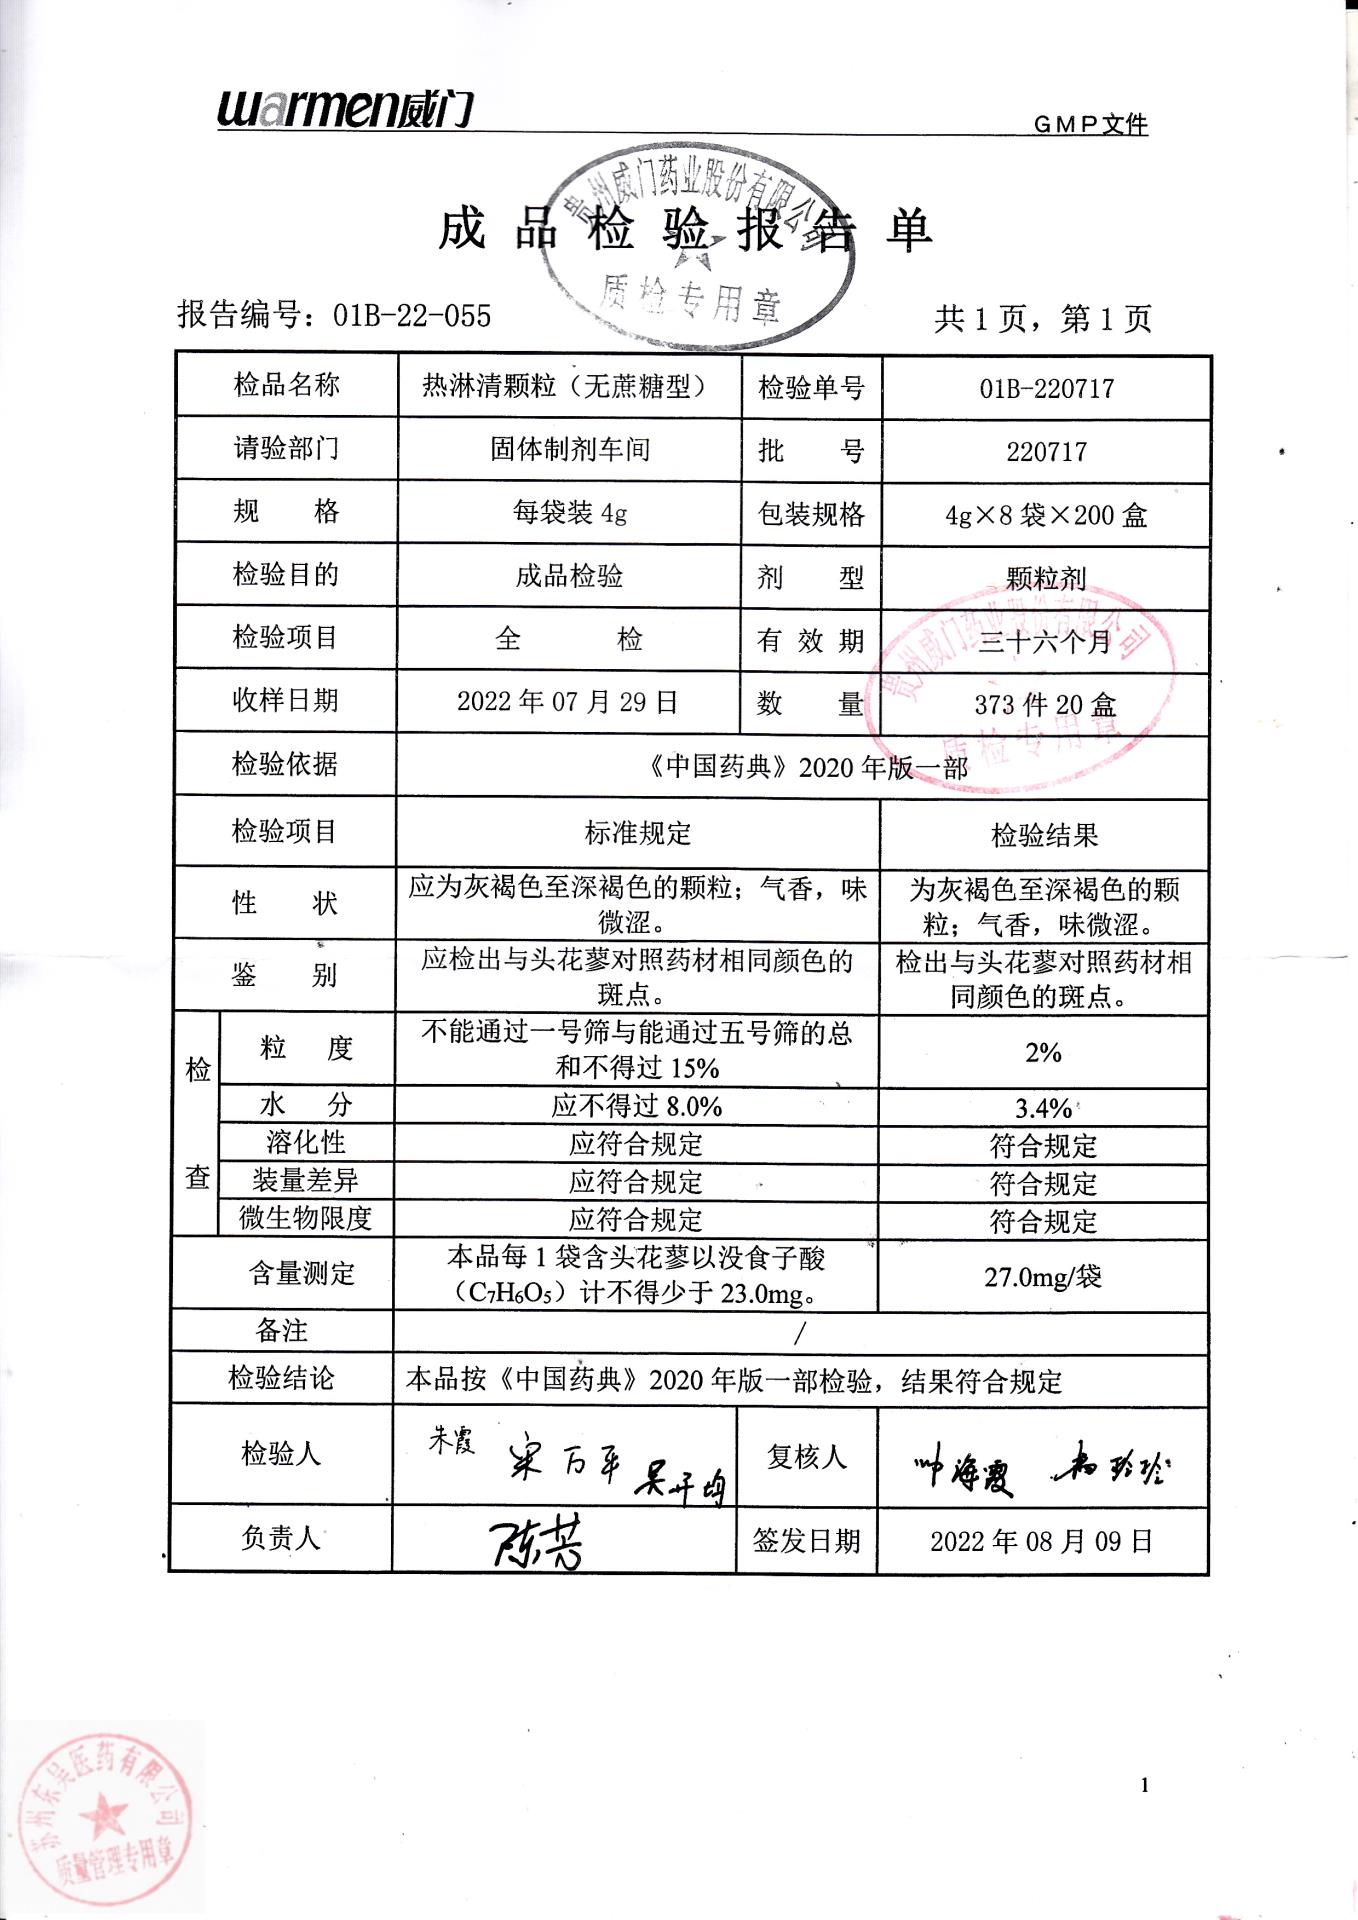 warmen威门
GMP文件
贵州威门药业股份有限公司
质检专用章
成品检验报告单
报告编号：01B-22-055 共1页，第1页
检品名称 热淋清颗粒（无蔗糖型） 检验单号 01B-220717
请验部门 固体制剂车间 批 号 220717
规 格 每袋装 4g 包装规格 4g×8 袋×200 盒
检验目的 成品检验 剂 型 颗粒剂
检验项目 全 检 有 效 期 三十六个月
收样日期 2022 年 07 月 29 日 数 量 373 件 20 盒
贵州威门药业股份有限公司
质检专用章
检验依据 《中国药典》2020 年版一部
检验项目 标准规定 检验结果
性 状 应为灰褐色至深褐色的颗粒；气香，味 为灰褐色至深褐色的颗
微涩。 粒；气香，味微涩。
鉴 别 应检出与头花蓼对照药材相同颜色的 检出与头花蓼对照药材相
斑点。 同颜色的斑点。
检查
粒 度 不能通过一号筛与能通过五号筛的总 2%
和不得过 15%
水 分 应不得过 8.0% 3.4%
溶化性 应符合规定 符合规定
装量差异 应符合规定 符合规定
微生物限度 应符合规定 符合规定
含量测定 本品每 1 袋含头花蓼以没食子酸 27.0mg/袋
（C₇H₆O₅）计不得少于 23.0mg。
备注 /
检验结论 本品按《中国药典》2020 年版一部检验，结果符合规定
检验人 朱霞 宋万平 吴开均 复核人 帅海霞 杨玲玲
负责人 陈芳 签发日期 2022 年 08 月 09 日
1
苏州东吴医药有限公司
质量管理专用章